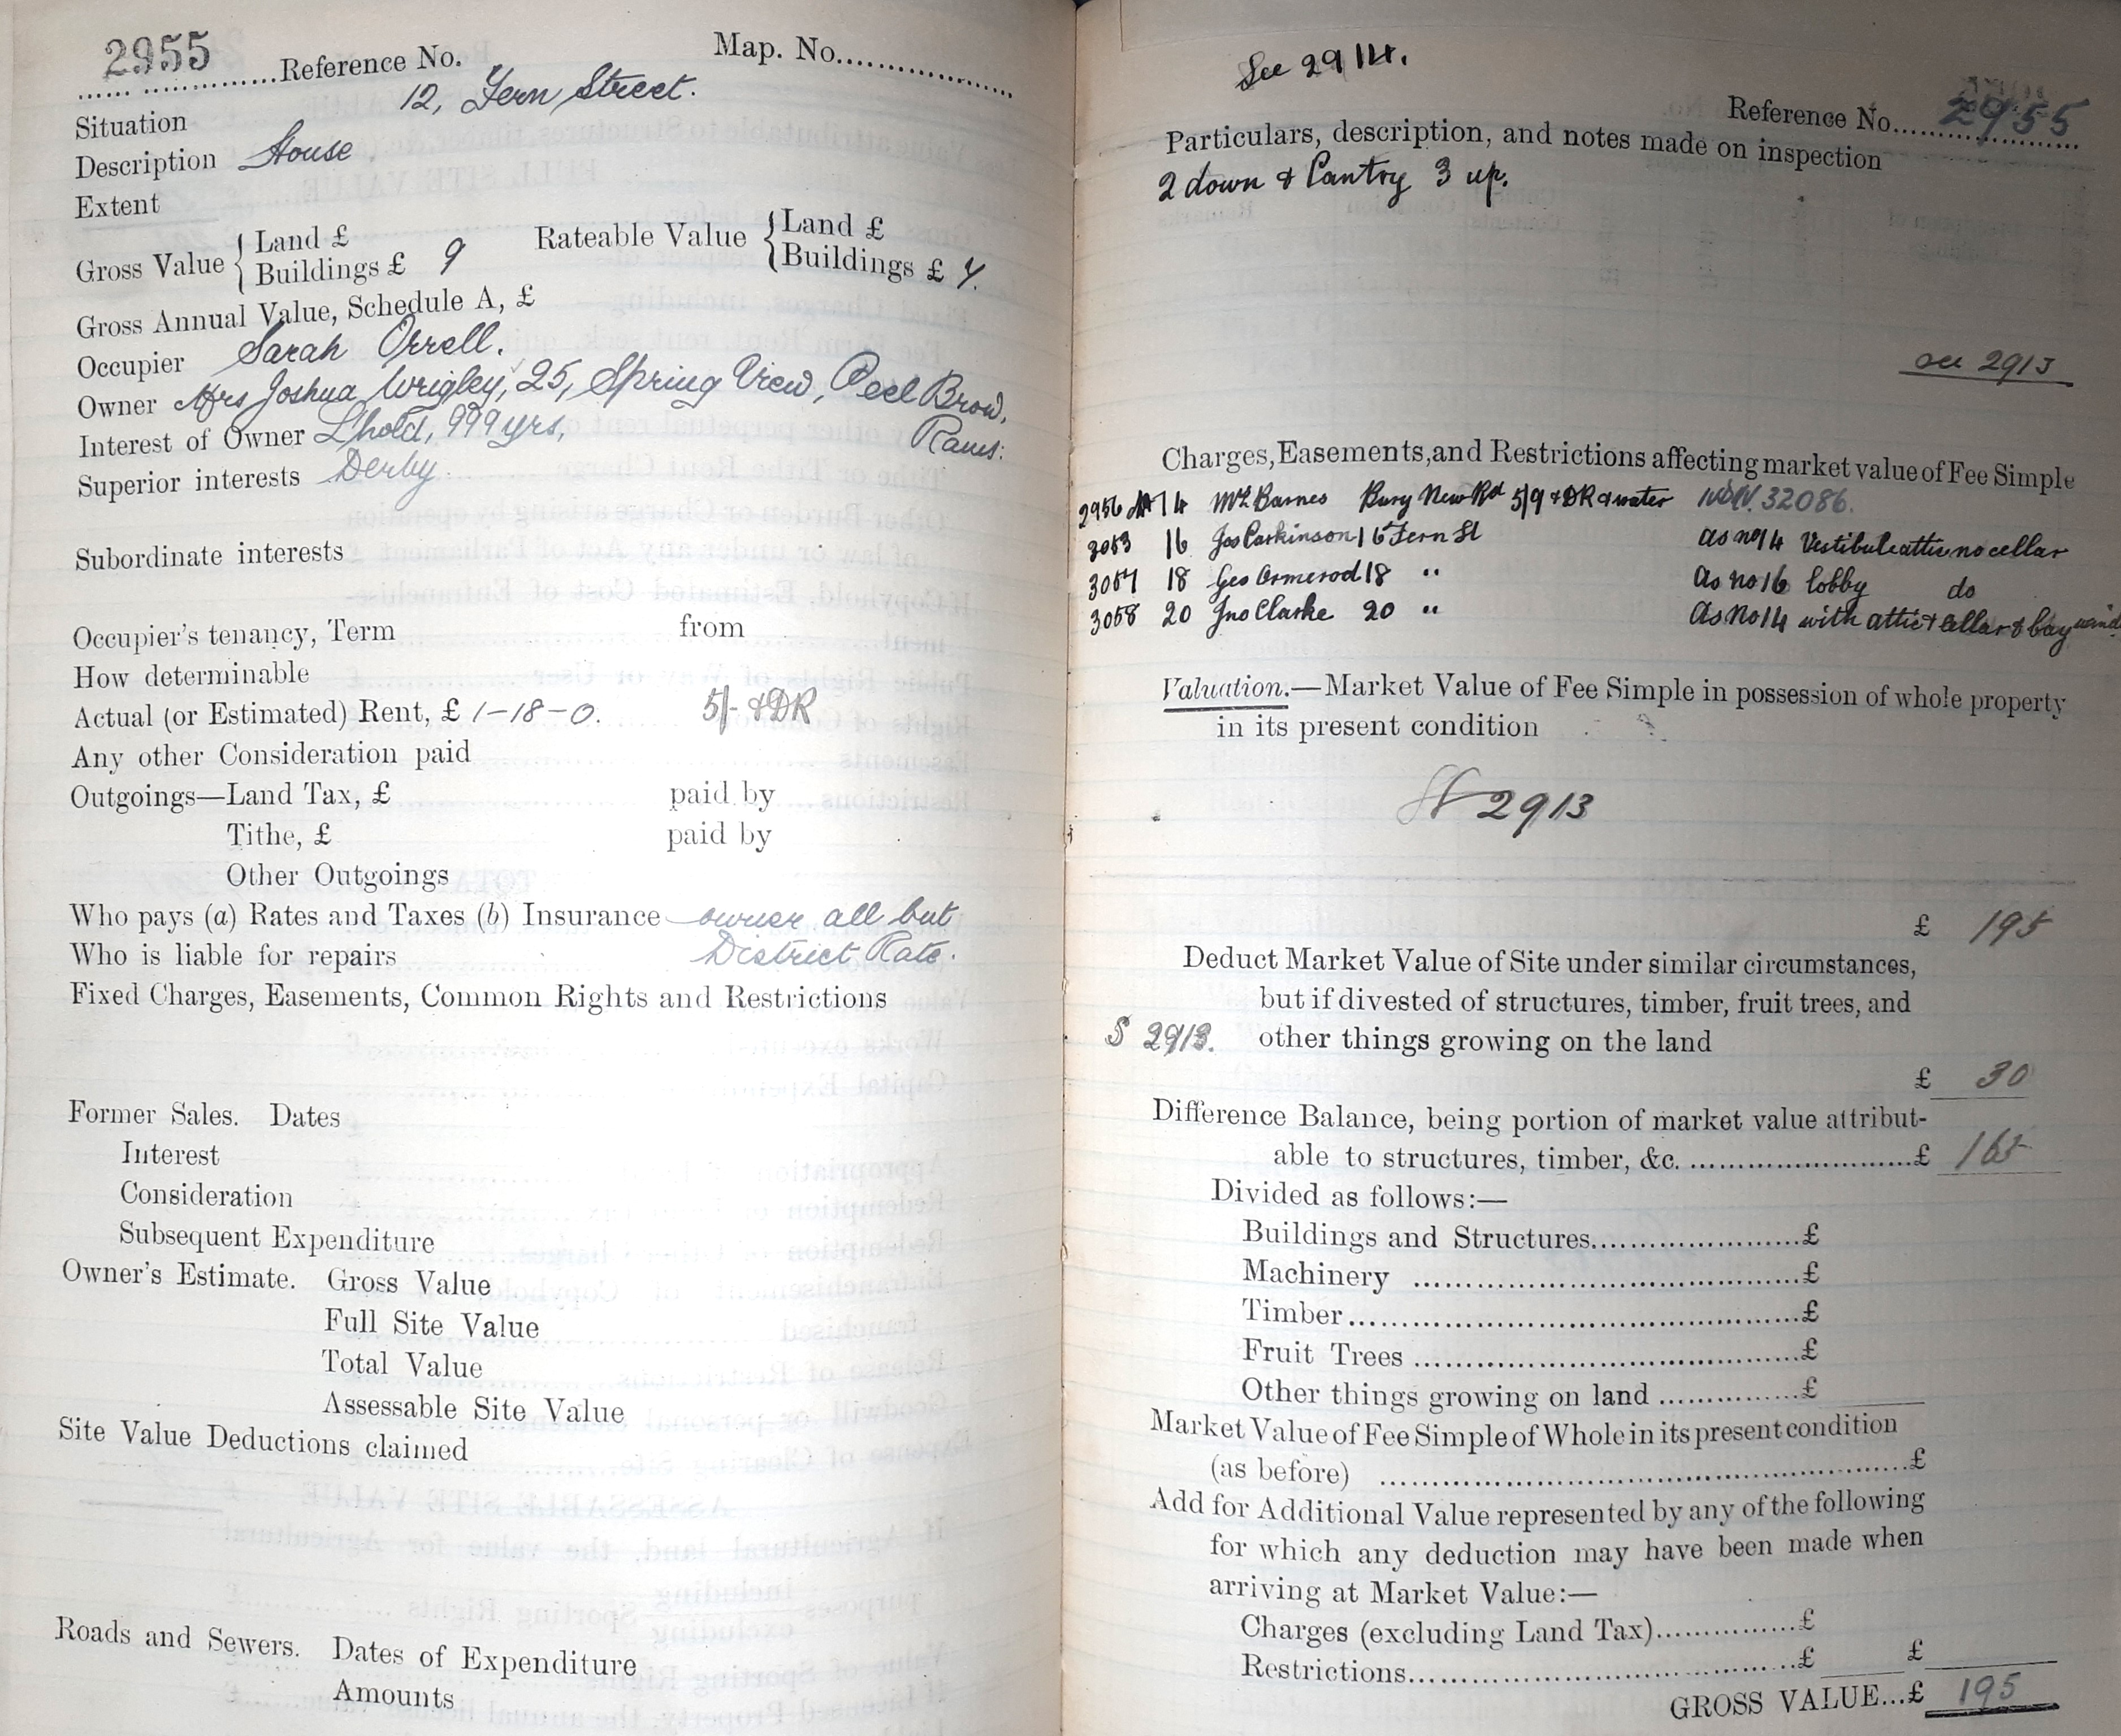 2955 Reference No. Map. No.
Situation 12, Fern Street.
Description House
Extent
Gross Value { Land £ Rateable Value { Land £
Buildings £ 9 Buildings £ 7.
Gross Annual Value, Schedule A, £
Occupier Sarah Orrell.
Owner Mrs Joshua Wrigley, 25, Spring View, Peel Brow,
Rams:
Interest of Owner L'hold, 999 yrs,
Superior interests Derby.
Subordinate interests
Occupier's tenancy, Term from
How determinable
Actual (or Estimated) Rent, £ 1-18-0. 5/- & DR
Any other Consideration paid
Outgoings—Land Tax, £ paid by
Tithe, £ paid by
Other Outgoings
Who pays (a) Rates and Taxes (b) Insurance owner all but
Who is liable for repairs District Rate.
Fixed Charges, Easements, Common Rights and Restrictions
Former Sales. Dates
Interest
Consideration
Subsequent Expenditure
Owner's Estimate. Gross Value
Full Site Value
Total Value
Assessable Site Value
Site Value Deductions claimed
Roads and Sewers. Dates of Expenditure
Amounts
See 2914.
Reference No. 2955
Particulars, description, and notes made on inspection
2 down & Pantry 3 up.
see 2913
Charges, Easements, and Restrictions affecting market value of Fee Simple
2956 14 Barnes Bury New Rd 5/9 & DR & water 32086.
3053 16 Jos Parkinson 16 Fern St as no 14 Vestibule attic no cellar
3057 18 Geo Ormerod 18 " As no 16 lobby do
3058 20 Jno Clarke 20 " As No 14 with attic & cellar & bay
Valuation.—Market Value of Fee Simple in possession of whole property
in its present condition
2913
£ 195
Deduct Market Value of Site under similar circumstances,
but if divested of structures, timber, fruit trees, and
S 2913. other things growing on the land
£ 30
Difference Balance, being portion of market value attribut-
able to structures, timber, &c. £ 165
Divided as follows:—
Buildings and Structures £
Machinery £
Timber £
Fruit Trees £
Other things growing on land £
Market Value of Fee Simple of Whole in its present condition
(as before) £
Add for Additional Value represented by any of the following
for which any deduction may have been made when
arriving at Market Value:—
Charges (excluding Land Tax) £
Restrictions £ £
GROSS VALUE...£ 195